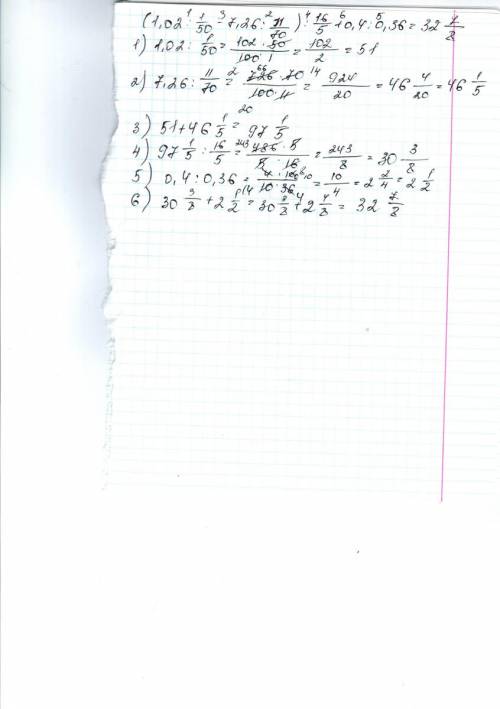 (1,02 : 1/50 + 7,26 : 11/70) : 16/5 + 0,4 : 0,36 = 32 7/8
1) 1,02 : 1/50 = 102 · 50 / 100 · 1 = 102/2 = 51
2) 7,26 : 11/70 = 726 · 70 / 100 · 11 = 924/20 = 46 4/20 = 46 1/5
3) 51 + 46 1/5 = 97 1/5
4) 97 1/5 : 16/5 = 486 · 5 / 5 · 16 = 243/8 = 30 3/8
5) 0,4 : 0,36 = 4 · 100 / 10 · 36 = 10/4 = 2 2/4 = 2 1/2
6) 30 3/8 + 2 1/2 = 30 3/8 + 2 4/8 = 32 7/8